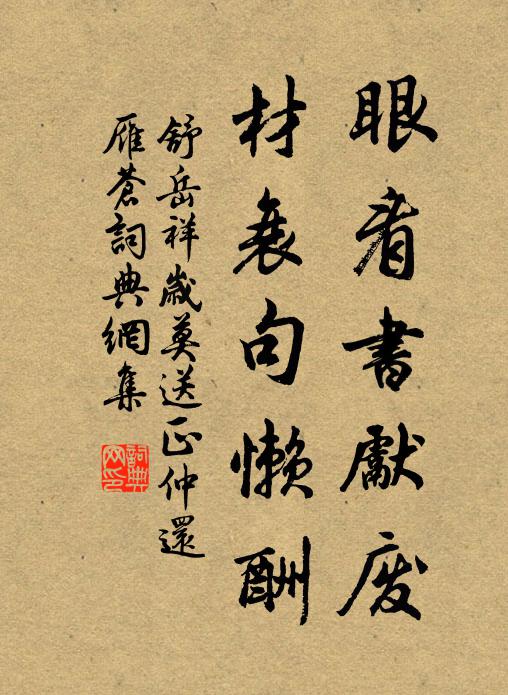 眼看書獻廢
材衰句懶酬
舒岳祥歲莫送正仲還
雁蒼詞典網集
詞典网印